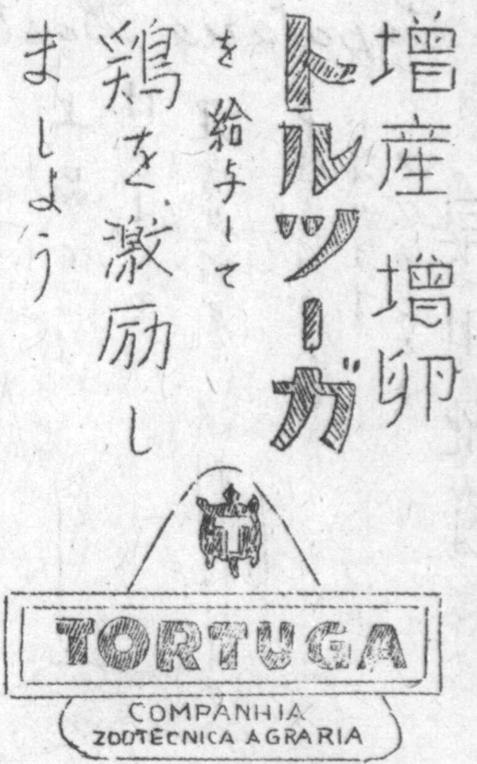 増産 増卵
トルツーガ
を給与して
鶏を激励し
ましょう
TORTUGA
COMPANHIA
ZOOTECNICA AGRARIA